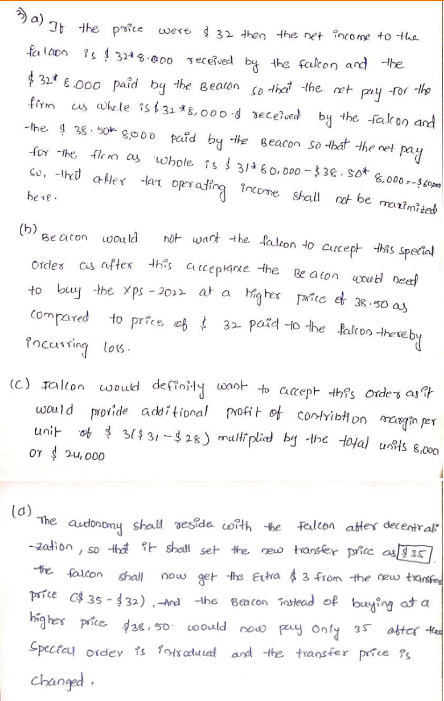 3) a) If the price were $ 32 then the net income to the
falcon is $ 32*8.000 received by the falcon and the
$ 32* 8.000 paid by the Beacon so that the net pay for the
firm as whole is $ 32 *8,000 received by the falcon and
the $ 38.50* 8,000 paid by the Beacon so that the net pay
for the firm as whole is $ 31*60,000-$38.50* 8,000=-$60000
so, that after tax operating income shall not be maximized
here.
(b) Beacon would not want the falcon to accept this special
order as after this acceptance the Beacon would need
to buy the XPS-2022 at a higher price of 38.50 as
compared to price of $ 32 paid to the falcon thereby
incurring loss.
(c) Falcon would definitly want to accept this order as it
would provide additional profit of contribtion margin per
unit of $ 3($31-$28) multiplied by the total units 8,000
or $ 24,000
(d) The autonomy shall reside with the Falcon after decentrali
-zation, so that it shall set the new transfer price as $35
the falcon shall now get the Extra $ 3 from the new transfer
price ($35-$32). And the Beacon instead of buying at a
higher price $38,50 would now pay only 35 after the
special order is introduced and the transfer price is
changed.